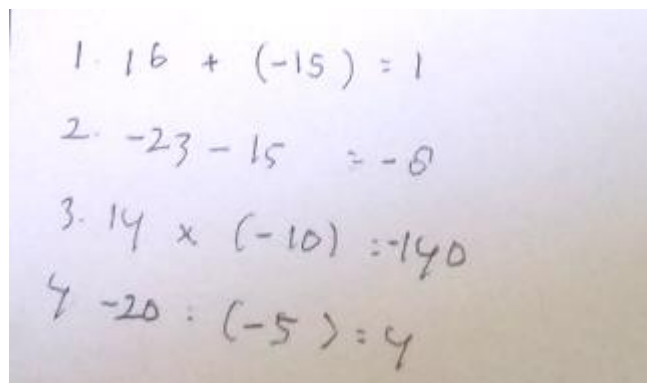 1. 16 + (-15) = 1
2. -23 - 15 = -8
3. 14 x (-10) = -140
4 -20 : (-5) = 4